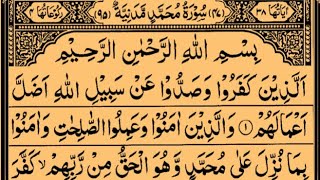 اٰیَاتُهَا ٣٨ (٤٧) سُوْرَةُ مُحَمَّدٍ مَّدَنِیَّةٌ (٩٥) رُكُوْعَاتُهَا ٤
بِسْمِ اللّٰهِ الرَّحْمٰنِ الرَّحِیْمِ
اَلَّذِیْنَ كَفَرُوْا وَصَدُّوْا عَنْ سَبِیْلِ اللّٰهِ اَضَلَّ
اَعْمَالَهُمْ ١ وَالَّذِیْنَ اٰمَنُوْا وَعَمِلُوا الصّٰلِحٰتِ وَاٰمَنُوْا
بِمَا نُزِّلَ عَلٰی مُحَمَّدٍ وَّهُوَ الْحَقُّ مِنْ رَّبِّهِمْ ۙ كَفَّرَ